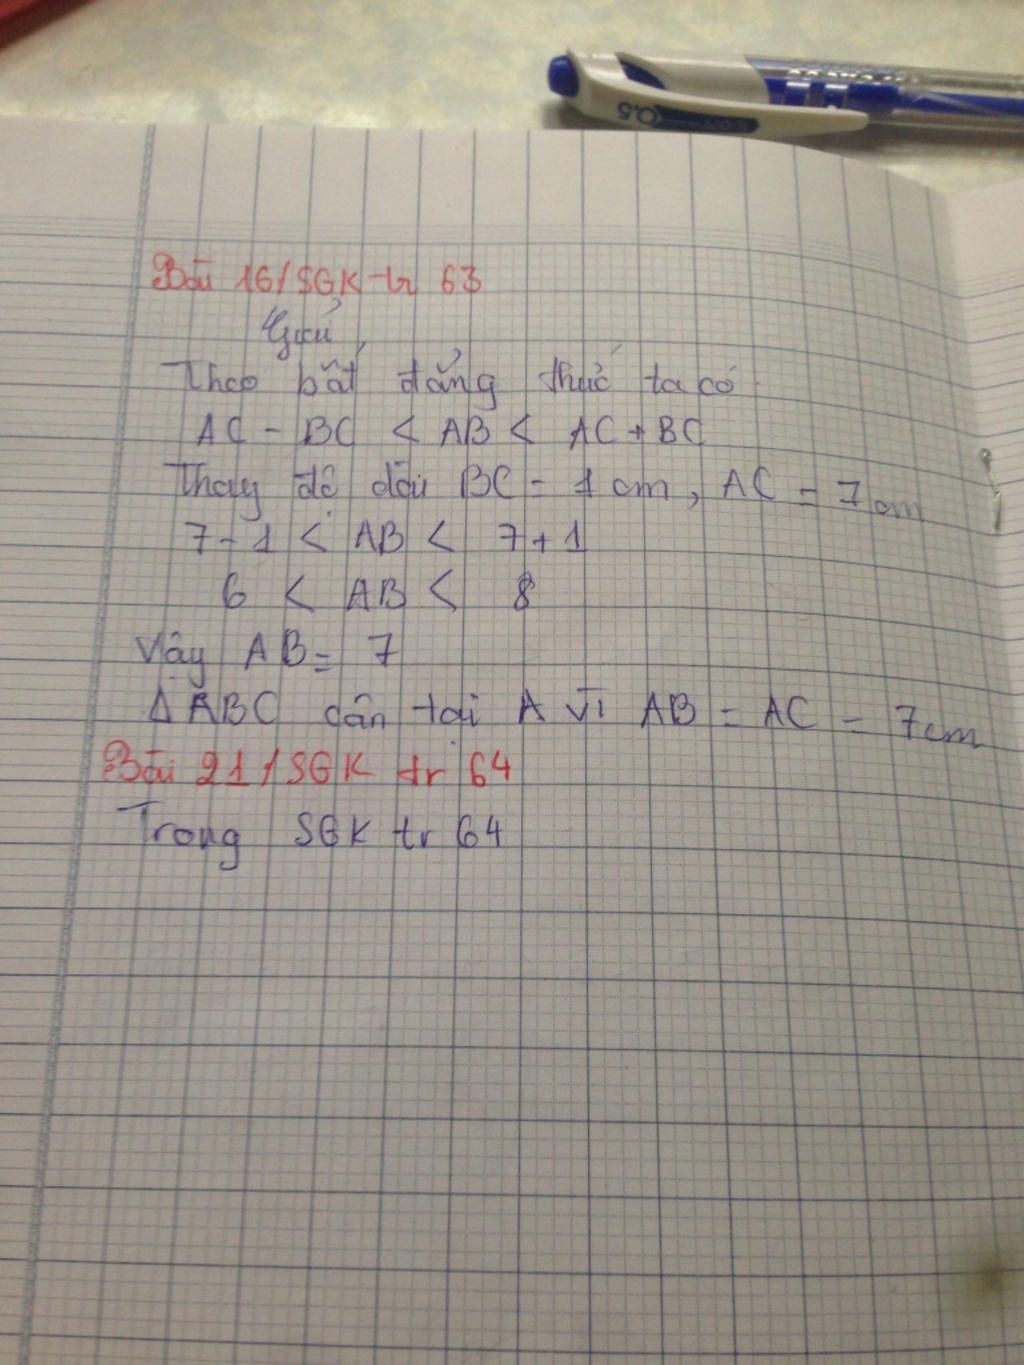 Bài 16/SGK tr 63
Giải
Theo bất đẳng thức ta có
AC - BC < AB < AC + BC
Thay độ dài BC = 1 cm, AC = 7 cm
7 - 1 < AB < 7 + 1
6 < AB < 8
Vậy AB = 7
Δ ABC cân tại A vì AB = AC = 7cm
Bài 21/SGK tr 64
Trong SGK tr 64
0.5